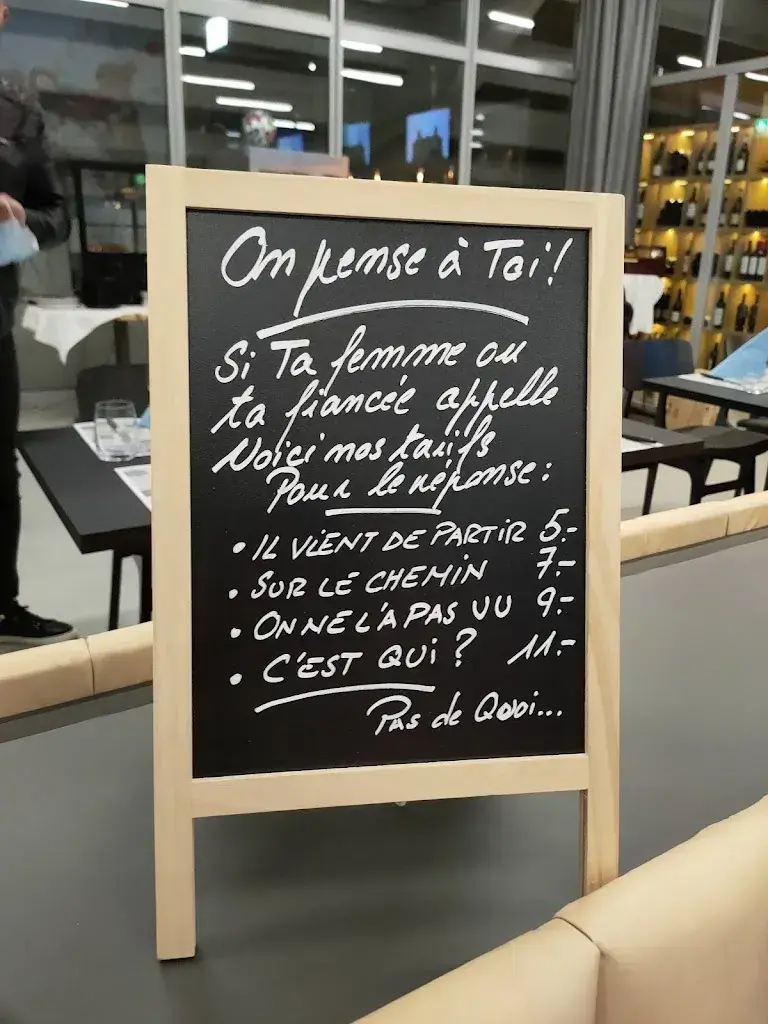 On pense à Toi!
Si Ta femme ou
ta fiancée appelle
Voici nos tarifs
Pour le réponse:
• IL VIENT DE PARTIR 5.-
• SUR LE CHEMIN 7.-
• ON NE L'A PAS VU 9.-
• C'EST QUI? 11.-
Pas de Quoi...